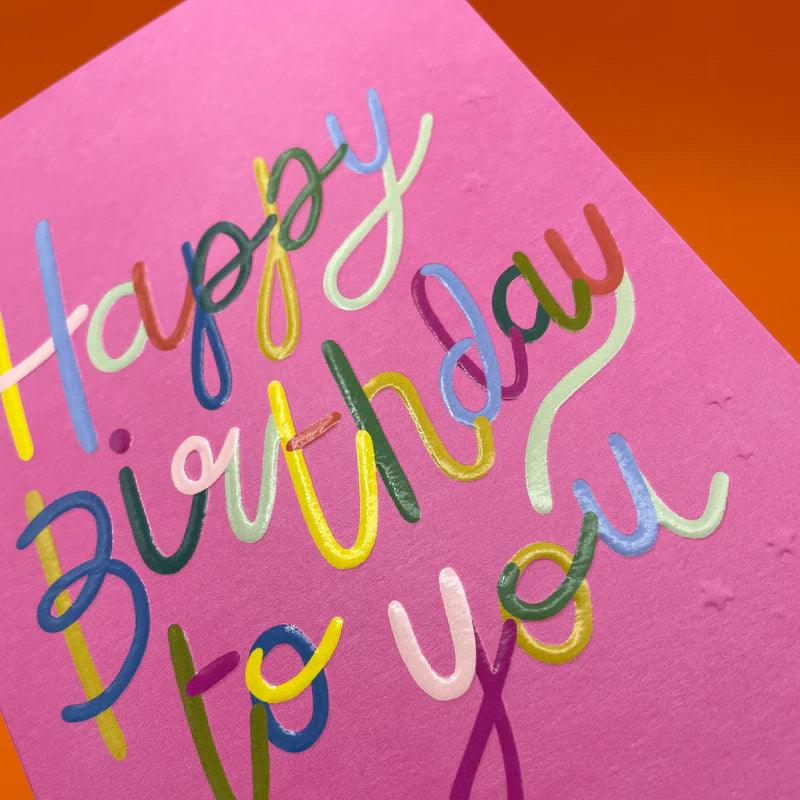 Happy
Birthday
to you